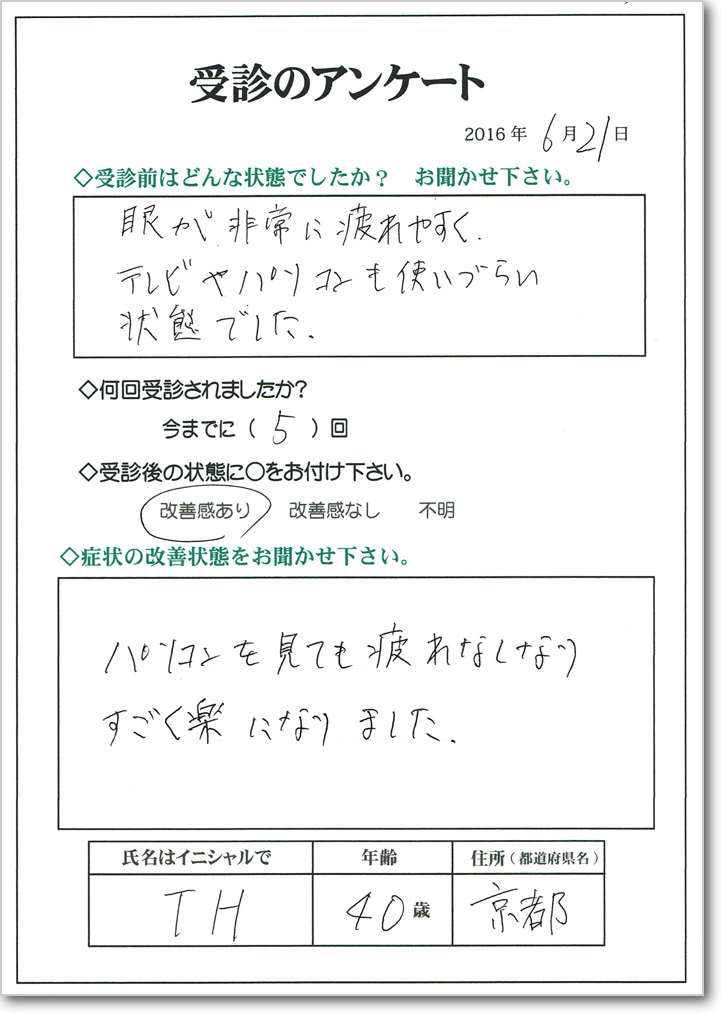 受診のアンケート
2016年 6月21日
◇受診前はどんな状態でしたか？　お聞かせ下さい。
眼が非常に疲れやすく.
テレビやパソコンも使いづらい
状態でした.
◇何回受診されましたか？
今までに（ 5 ）回
◇受診後の状態に〇をお付け下さい。
改善感あり　改善感なし　不明
◇症状の改善状態をお聞かせ下さい。
パソコンを見ても疲れなしなり
すごく楽になりました.
氏名はイニシャルで　年齢　住所（都道府県名）
TH　40歳　京都